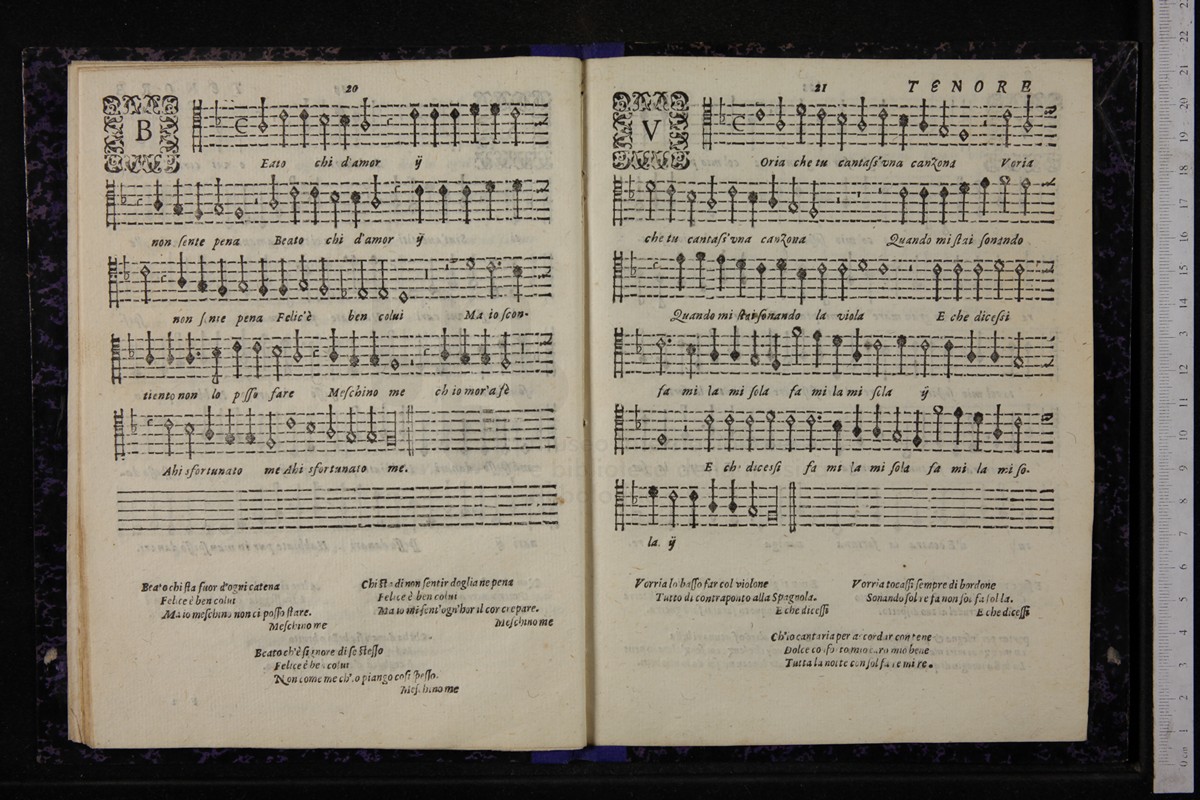 20
B
Eato chi d'amor ij
non sente pena Beato chi d'amor ij
non sente pena Felic'è ben colui Ma io scon-
tiento non lo posso fare Meschino me ch io mor'a fè
Ahi sfortunato me Ahi sfortunato me.
Beato chi sta fuor d'ogni catena
Felice è ben colui
Ma io meschino non ci posso stare.
Meschino me
Chi sta di non sentir doglia ne pena
Felice è ben colui
Ma io mi sent'ogn'hor il cor crepare.
Meschino me
Beato ch'è signore di se stesso
Felice è ben colui
Non come me ch'io piango cosi spesso.
Meschino me
21 TENORE
V
Oria che tu cantass'vna canzona Voria
che tu cantass'vna canzona Quando mi stai sonando
Quando mi stai sonando la viola E che dicessi
fa mi la mi sola fa mi la mi sola ij
E che dicessi fa mi la mi sola fa mi la mi so-
la. ij
Vorria lo basso far col violone
Tutto di contraponto alla Spagnola.
E che dicessi
Vorria tocassi sempre di bordone
Sonando sol re fa non sol fa sol la.
E che dicessi
Ch'io cantaria per accordar con tene
Dolce conforto mio caro mio bene
Tutta la notte con sol fa re mi re.